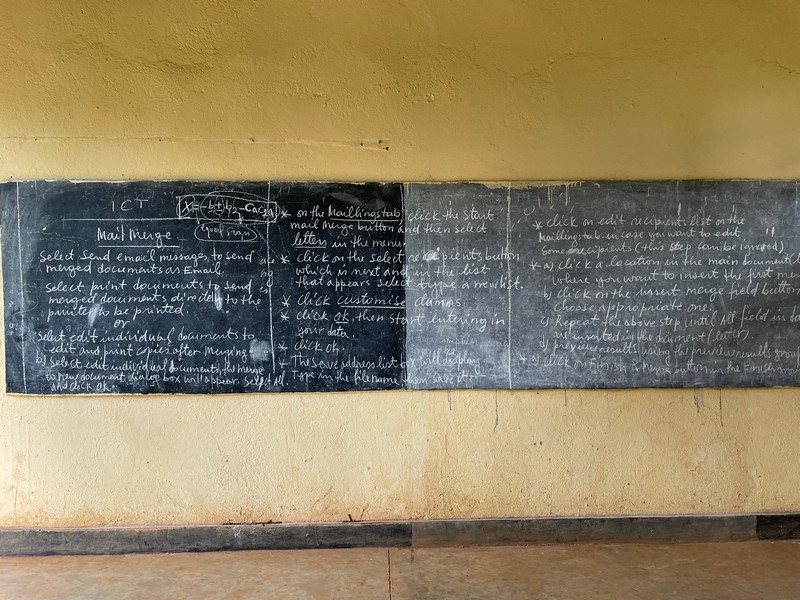 ICT
Mail Merge
Select Send email messages, to send
merged documents as Email.
Select print documents to send
merged documents directly to the
printer to be printed.
or
Select edit individual documents to
edit and print copies after Merging
b) Select edit individual documents, the merge
to new document dialog box will appears Select All.
and click OK
equal sign
* on the Maillings tab click the Start
mail merge button and then select
letters in the menu
* click on the Select recipients button
which is next and in the list
that appears Select type a new list.
* click customise
* click OK, then Start entering in
your data.
* click OK.
* The save address list will display
Type in the file name then save it
* click on edit recipient list on the
Maillings tab in case you want to edit
Some recipients (this step can be ignored)
* a) click a location in the main document
where you want to insert the first
b) click on the insert merge field button
choose appropriate one.
c) Repeat the above step until All field in
are inserted in the document (letter)
d) preview results using the preview results group
* a) click on Finish & Merge button in the Finish